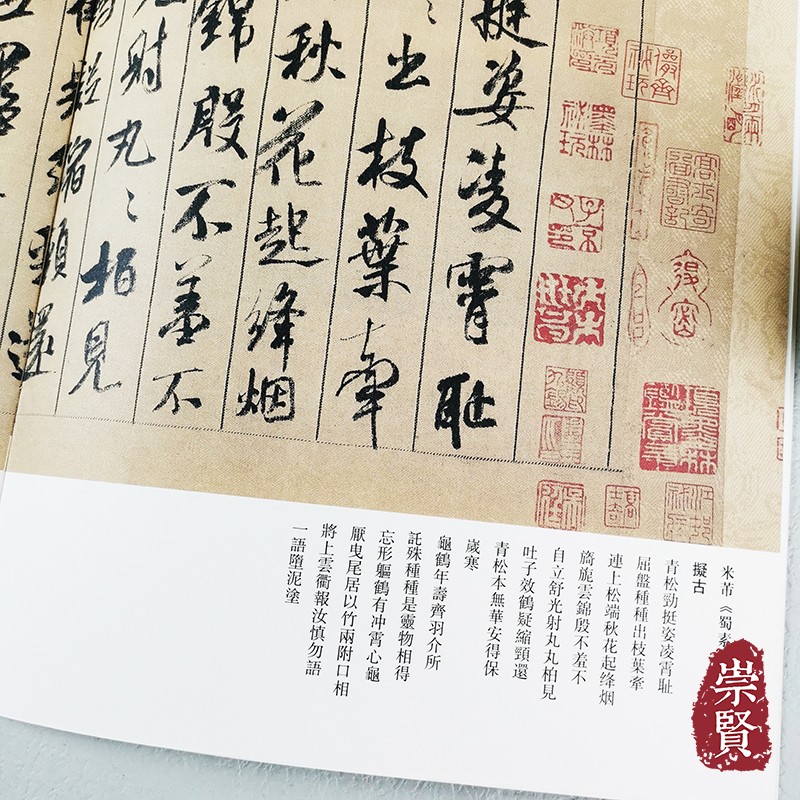 挺姿凌霄耻
〻出枝葉牽
秋花起絳烟
錦殷不羞不
射丸〻柏見
鶴疑縮頸還
米芾《蜀素
擬古
青松勁挺姿凌霄耻
屈盤種種出枝葉牽
連上松端秋花起绛烟
旖旎雲錦殷不羞不
自立舒光射丸丸柏見
吐子效鶴疑縮頸還
青松本無華安得保
歲寒
龜鶴年壽齊羽介所
託殊種種是靈物相得
忘形軀鶴有冲霄心龜
厭曳尾居以竹兩附口相
將上雲衢報汝慎勿語
一語墮泥塗
崇賢